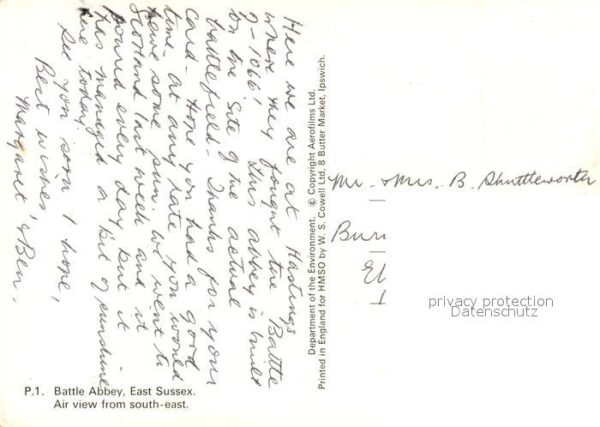 Here we are at Hastings
where they fought the Battle
of – 1066! This abbey is built
on the site of the actual
battlefield. Thanks for your
card – hope you had a good
time – at any rate you would
have some fun. We went to
Scotland last week and it
poured every day but it
has managed a bit of sunshine
here today.
See you soon I hope,
Best wishes,
Margaret & Ben.
P.1. Battle Abbey, East Sussex.
Air view from south-east.
Department of the Environment. © Copyright Aerofilms Ltd.
Printed in England for HMSO by W. S. Cowell Ltd, 8 Butter Market, Ipswich.
Mr. & Mrs. B. Shuttleworth
privacy protection
Datenschutz